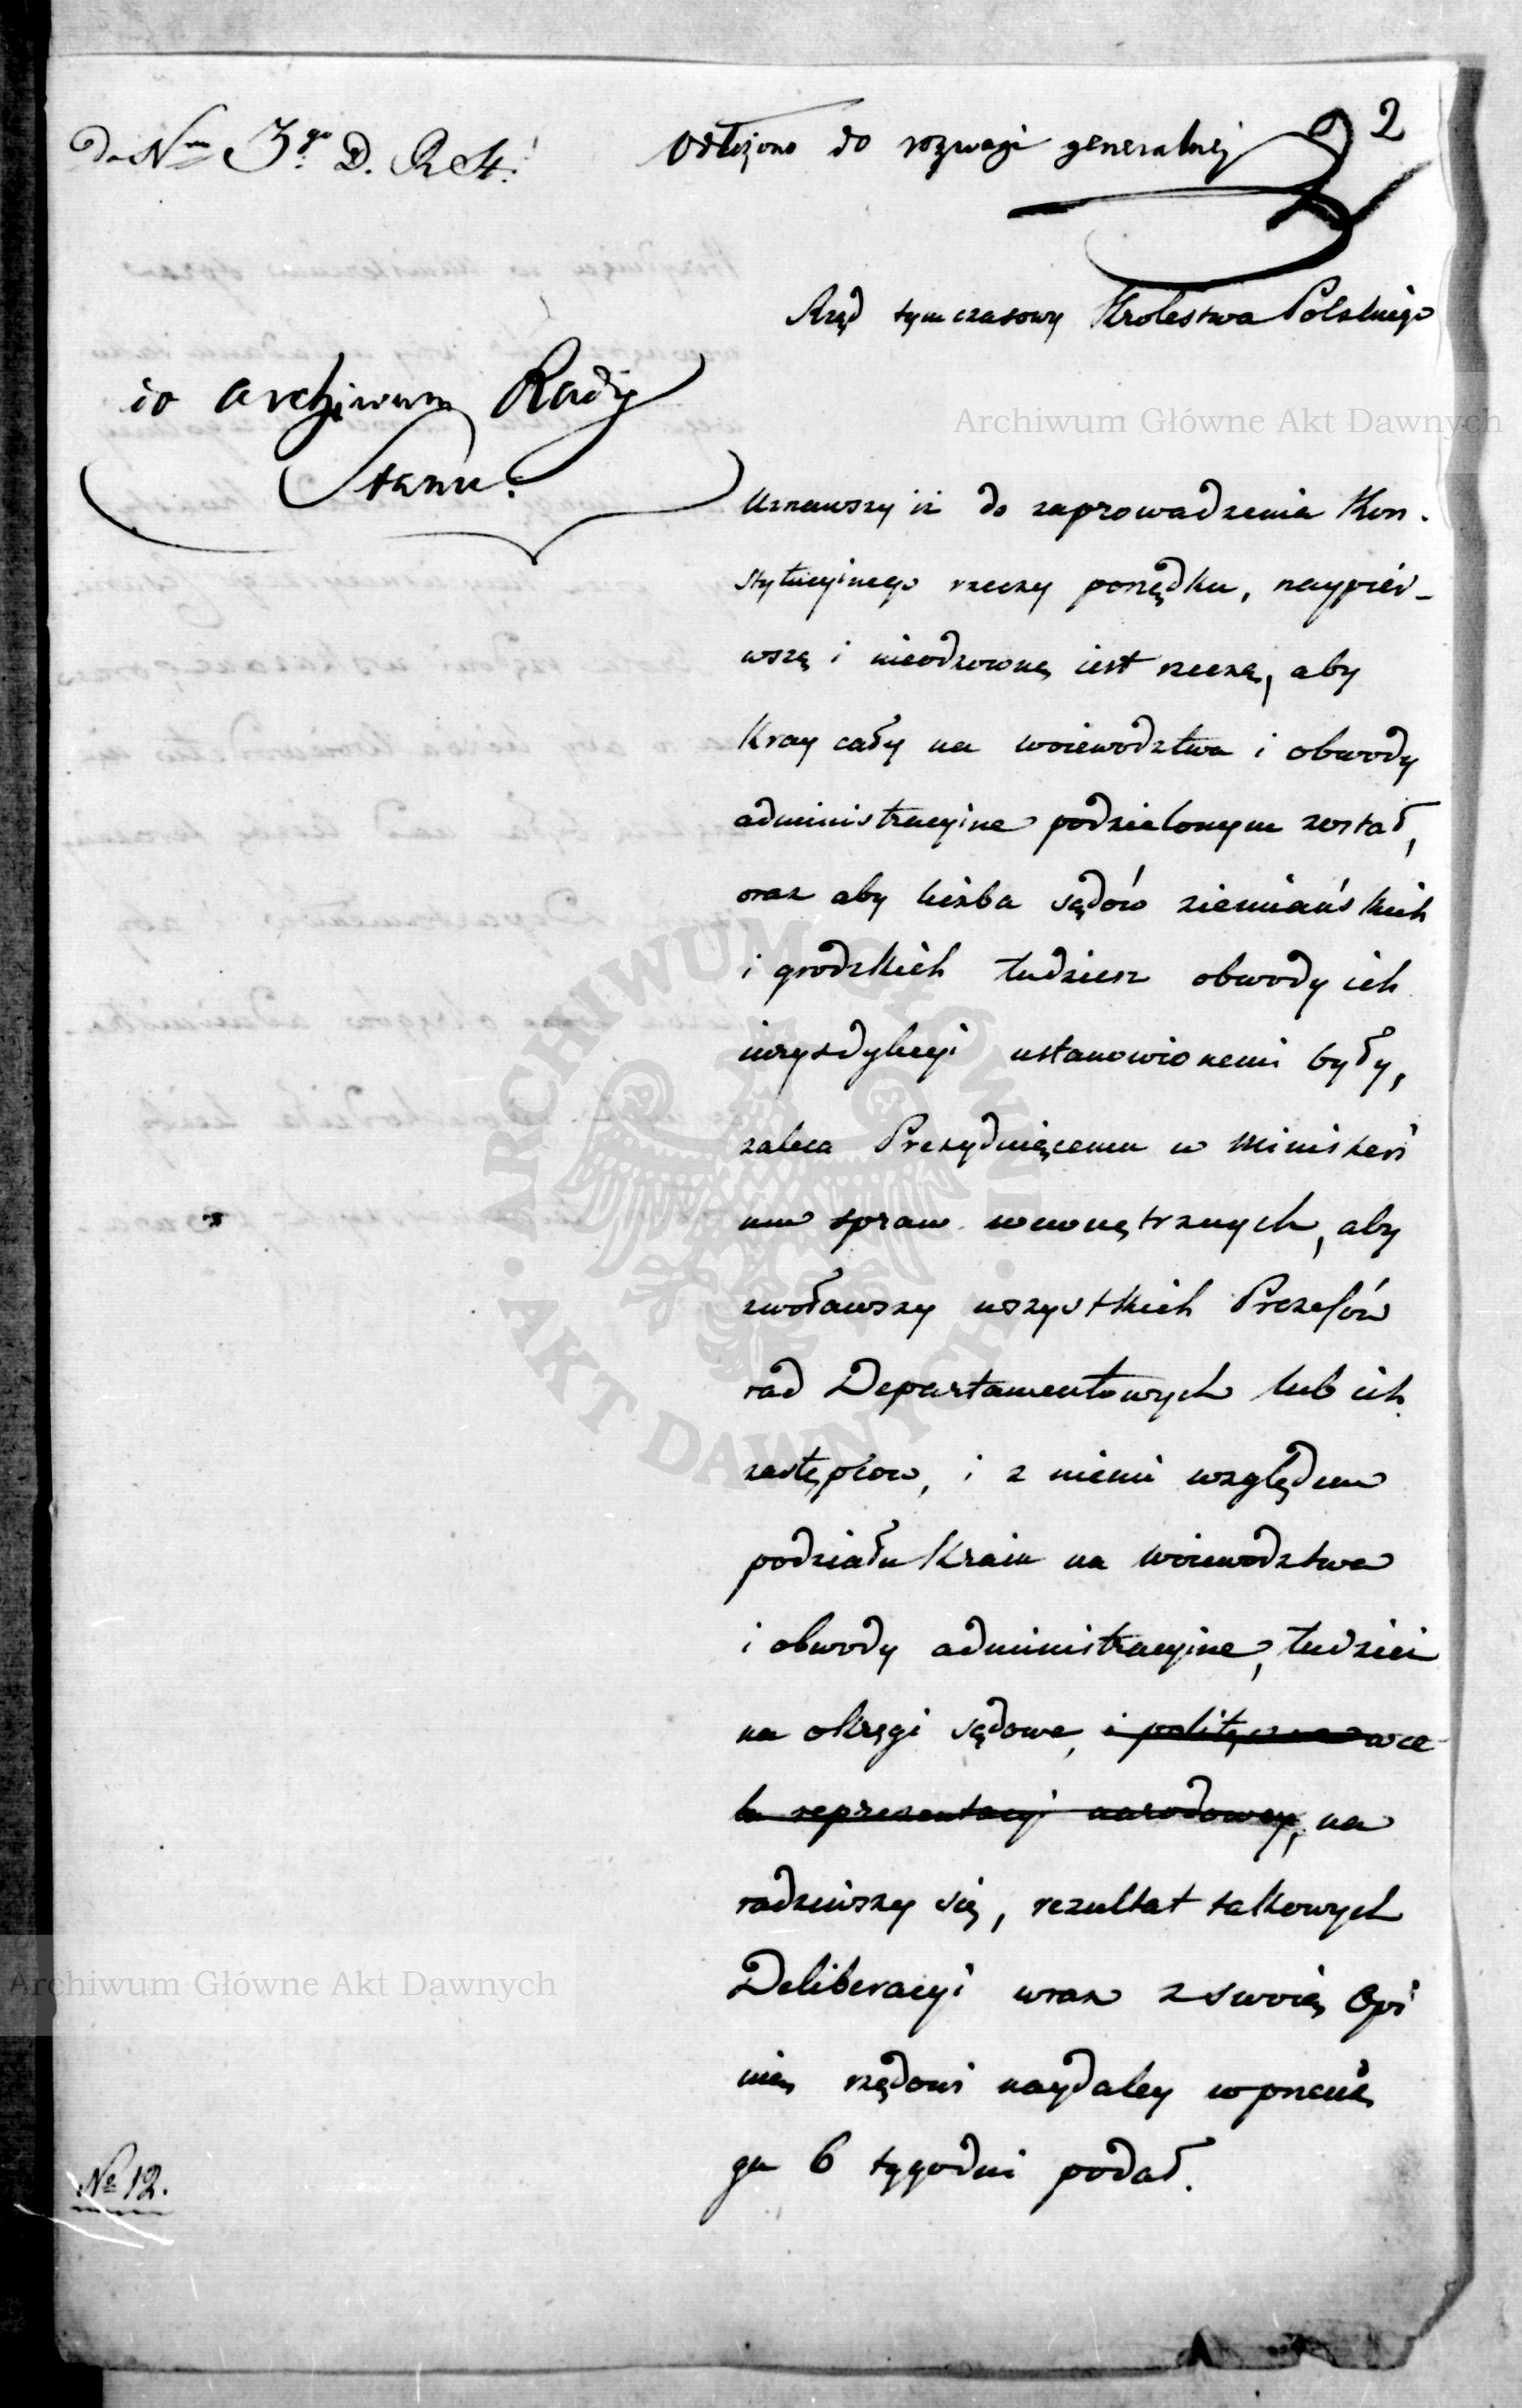 Do Nru 3go D. R. St.
Odłożono do rozwagi generalnej
2
Rząd tymczasowy Krolestwa Polskiego
do Archiwum Rady
Stanu.
Archiwum Główne Akt Dawnych
Uznawszy iż do zaprowadzenia Kon-
stytucyinego rzeczy porządku, naypiér-
wszą i nieodzowną iest rzeczą, aby
Kray cały na woiewodztwa i obwody
administracyine podzielonym został,
oraz aby liczba sądów ziemiańskich
i grodzkich tudziesz obwody ich
iurysdykcyi ustanowionemi były,
zaleca Prezyduiącemu w Ministeri
um spraw wewnętrznych, aby
zwoławszy wszystkich Prezesów
rad Departamentowych lub ich
zastępców, i z niemi względem
podziału Kraiu na woiewodztwa
i obwody administracyine, tudzież
na okręgi sądowe, i polityczne w ce
lu reprezentacyi narodowey, na
radziwszy się, rezultat takowych
Deliberacyi wraz z swoią Opi
nią rządowi naydaley w przecią
gu 6 tygodni podał.
Archiwum Główne Akt Dawnych
No 12.
ARCHIWUM GŁÓWNE AKT DAWNYCH